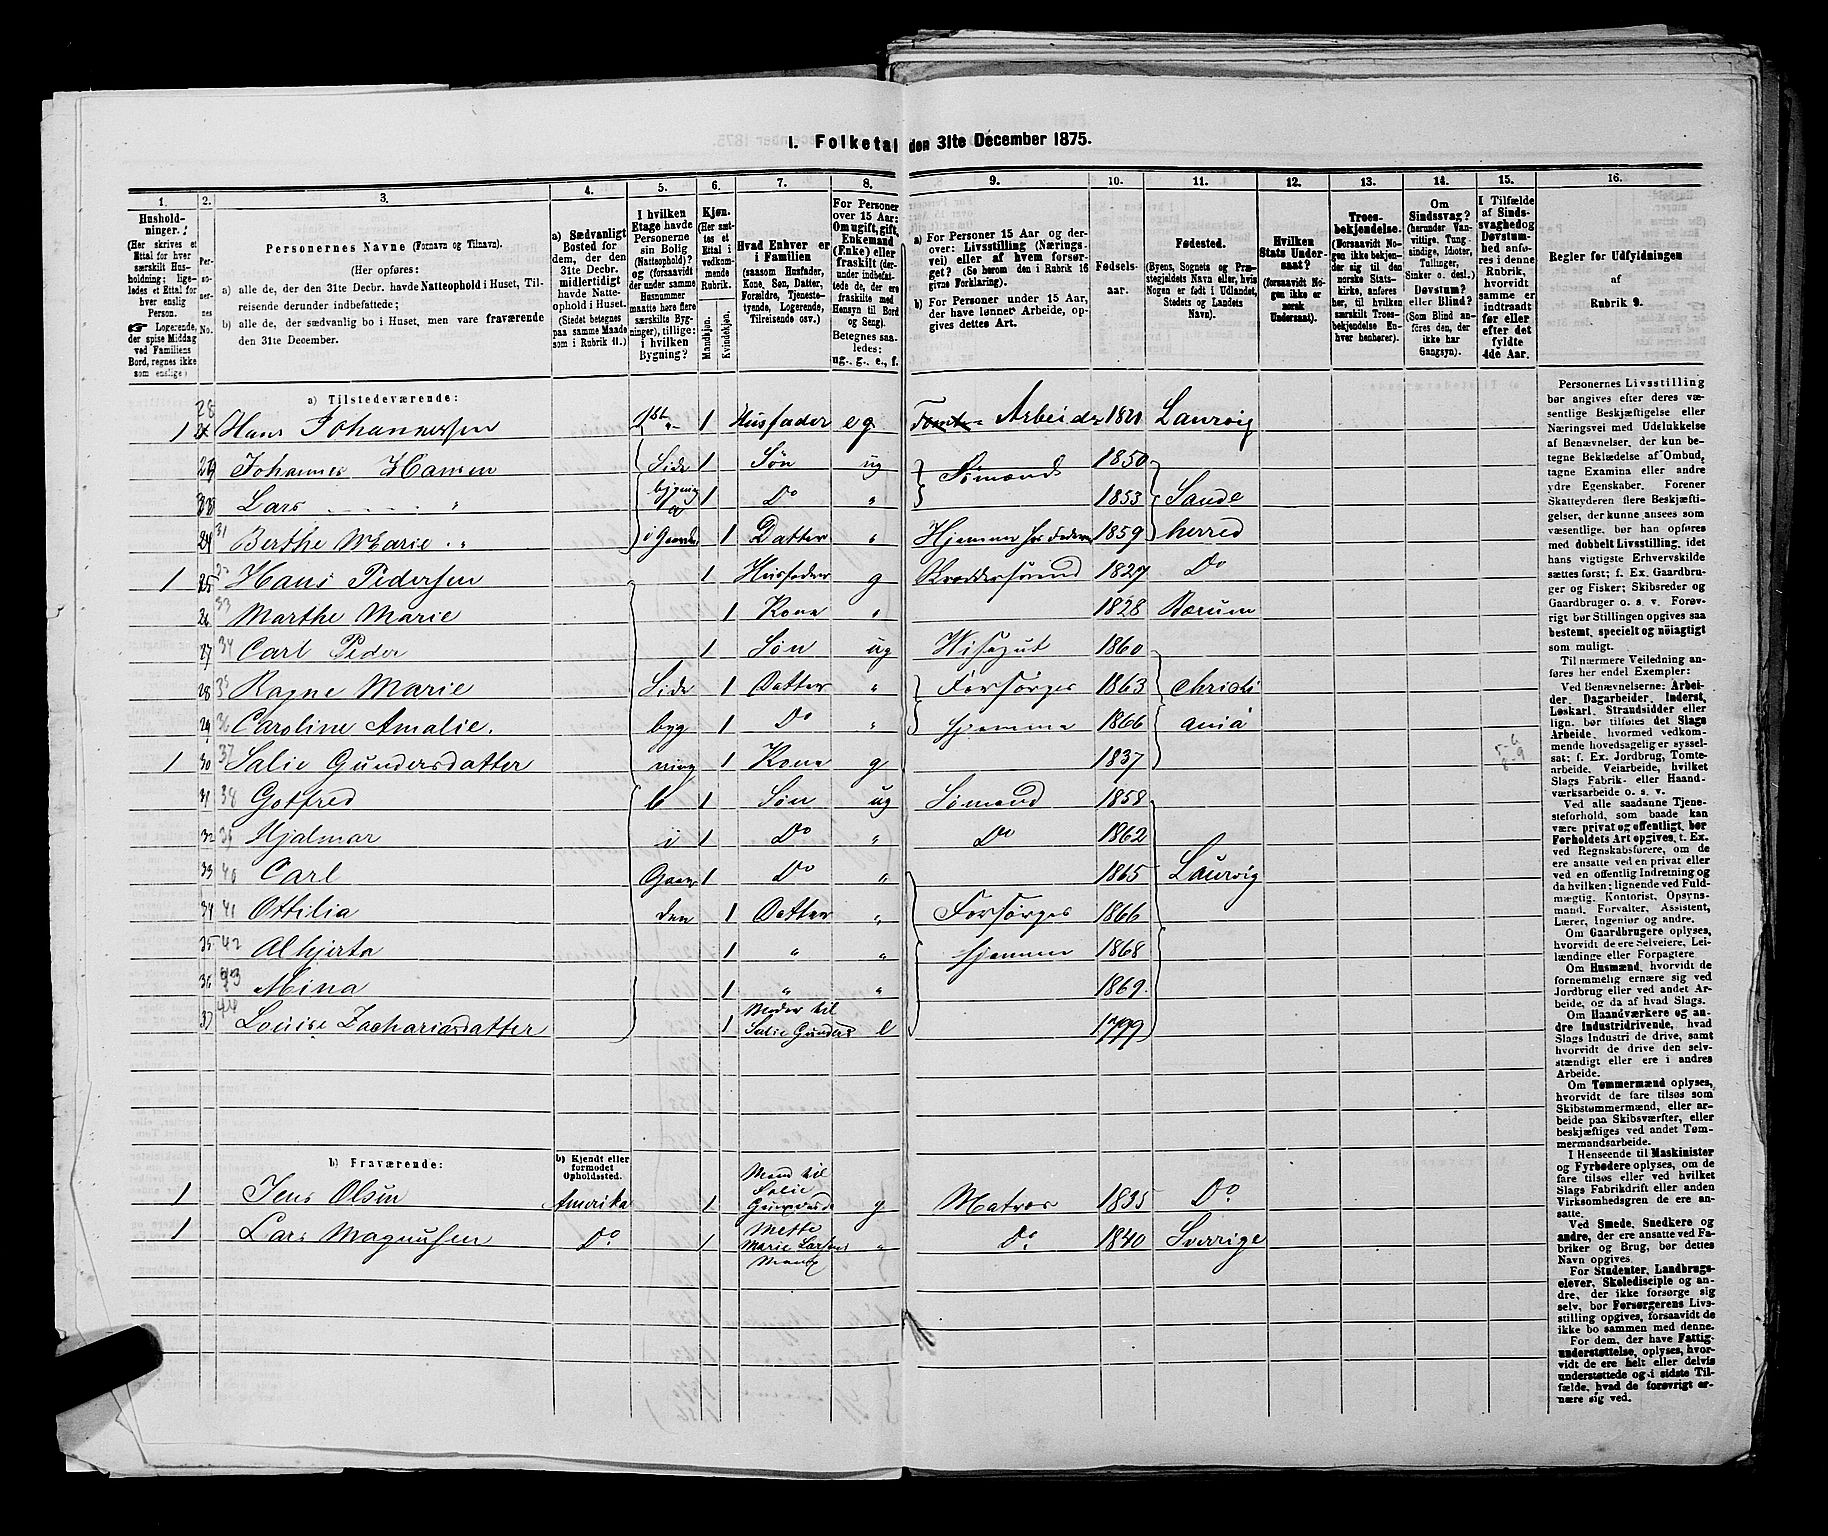 I. Folketal den 31te December 1875.
1. 2. 3. 4. 5. 6. 7. 8. 9. 10. 11. 12. 13. 14. 15. 16.
Hushold-
ninger.
(Her skrives et
Ettal for hver
særskilt Hus-
holdning; lige-
ledes et Ettal for
hver enslig
Person.
☞ Logerende,
der spise Middag
ved Familiens
Bord, regnes ikke
som enslige)
Per-
so-
ner-
nes
No.
Personernes Navne (Fornavn og Tilnavn).
(Her opføres:
a) alle de, der den 31te Decbr. havde Natteophold i Huset, Til-
reisende derunder indbefattede;
b) alle de, der sædvanlig bo i Huset, men vare fraværende
den 31te December.
a) Sædvanligt
Bosted for
dem, der den
31te Decbr.
midlertidigt
havde Natte-
ophold i Huset.
(Stedet betegnes
paa samme Maade
som i Rubrik 11.)
I hvilken
Etage havde
Personerne
sin Bolig
(Natteophold)?
og (forsaavidt
der under samme
Husnummer
maatte høre flere
særskilte Byg-
ninger), tillige:
i hvilken
Bygning?
Kjøn.
(Her sæt-
tes et
Ettal i
vedkom-
mende
Rubrik.
Mandkjøn.
Kvindekjøn.
Hvad Enhver er
i Familien
(saasom Husfader,
Kone, Søn, Datter,
Forældre, Tjeneste-
tyende, Logerende,
Tilreisende osv.)
For Personer
over 15 Aar:
Om ugift, gift,
Enkemand
(Enke) eller
fraskilt (der-
under indbefat-
tede de, der ere
fraskilte med
Hensyn til Bord
og Seng).
Betegnes saa-
ledes:
ug., g., e., f.
a) For Personer 15 Aar og der-
over: Livsstilling (Nærings-
vei) eller af hvem forsør-
get? (Se herom den i Rubrik 16
givne Forklaring).
b) For Personer under 15 Aar,
der have lønnet Arbeide, op-
gives dettes Art.
Fødsels-
aar.
Fødested.
(Byens, Sognets og Præ-
stegjeldets Navn eller, hvis
Nogen er født i Udlandet,
Stedets og Landets
Navn).
Hvilken
Stats Under-
saat?
(forsaavidt No-
gen ikke er
norsk
Undersaat).
Troes-
bekjendelse.
(Forsaavidt No-
gen ikke bekjen-
der sig til den
norske Stats-
kirke, anføres
her, til hvilken
særskilt Troes-
bekjendelse En-
hver henhører).
Om
Sindssvag?
(herunder Van-
vittige, Tung-
sindige, Idioter,
Tullinger,
Sinker o. desl.)
Døvstum?
eller Blind?
(Som Blind an-
føres den, der
ikke har
Gangsyn).
I Tilfælde
af Sinds-
svaghed og
Døvstum-
hed anfø-
res i denne
Rubrik,
hvorvidt
samme er
indtraadt
før eller
efter det
fyldte
4de Aar.
Regler for Udfyldningen
af
Rubrik 9.
a) Tilstedeværende:
1 28 Hans Johannessen 1st 1 Husfader e g Tomt- Arbeider 1821 Laurvig
29 Johannes Hansen Side 1 Søn ug Sømænd 1850
Lars " bygning a 1 Do " 1853 Sande
24 31 Berthe Marie " i Gaarden 1 Datter " Hjemme hos Faderen 1859 herred
1 25 Hans Pedersen 1 Husfader g 1827 Do
26 33 Marthe Marie 1 Kone " 1828 Bærum
27 34 Carl Peder 1 Søn ug Visegut 1860
28 35 Ragne Marie Side 1 Datter " Forsørges 1863 Christi
29 36 Caroline Amalie. byg 1 Do " hjemme 1866 ania
1 30 37 Salie Gundersdatter ning 1 Kone g 1837 5-6 8-9
31 38 Gotfred b 1 Søn ug Sømand 1858
32 39 Hjalmar i 1 Do " Do 1862
33 40 Carl Gaar 1 Do " 1865 Laurvig
34 41 Ottilia den 1 Datter " Forsørges 1866
35 42 Albjerta 1 " " hjemme 1868
36 43 Mina 1 " " 1869
37 44 Louise Zachariasdatter 1 Moder til Salie Gunders e 1799
b) Fraværende:
b) Kjendt eller
formodet
Opholdssted.
1 Jens Olsen Amerika 1 Mand til Salie g Matros 1835 Do
1 Lars Magnusen Do 1 Mette Marie Larsens Mand " Do 1840 Sverrige
Personernes Livsstilling
bør angives efter deres væ-
sentlige Beskjæftigelse eller
Næringsvei med Udelukkelse
af Benævnelser, der kun be-
tegne Beklædelse af Ombud,
tagne Examina eller andre
ydre Egenskaber. Forener
Skatteyderen flere Beskjæfti-
gelser, der kunne ansees som
væsentlige, bør han opføres
med dobbelt Livsstilling, idet
hans vigtigste Erhvervskilde
sættes først; f. Ex. Gaardbru-
ger og Fisker; Skibsreder og
Gaardbruger o. s. v. Forøv-
rigt bør Stillingen opgives saa
bestemt, specielt og nøiagtigt
som muligt.
Til nærmere Veiledning an-
føres her endel Exempler:
Ved Benævnelserne: Arbei-
der, Dagarbeider, Inderst,
Løskarl, Strandsidder eller
lign. bør tilføies det Slags
Arbeide, hvormed vedkom-
mende hovedsagelig er syssel-
sat; f. Ex. Jordbrug, Tomte-
arbeide, Veiarbeide, hvilket
Slags Fabrik- eller Haand-
værksarbeide o. s. v.
Ved alle saadanne Tjene-
steforhold, som baade kan
være privat og offentligt, bør
Forholdets Art opgives, t. Ex.
ved Regnskabsførere, om de
ere ansatte ved en privat eller
ved en offentlig Indretning og
da hvilken; lignende ved Fuld-
mægtig, Kontorist, Opsyns-
mand, Forvalter, Assistent,
Lærer, Ingeniør og andre.
Om Gaardbrugere oplyses,
hvorvidt de ere Selveiere, Lei-
lændinge eller Forpagtere.
Om Husmænd, hvorvidt de
fornemmelig ernære sig ved
Jordbrug eller ved andet Ar-
beide, og da af hvad Slags.
Om Haandværkere og an-
dre Industridrivende, hvad
Slags Industri de drive, samt
hvorvidt de drive den selv-
stændigt eller ere i andres
Arbeide.
Om Tømmermænd oplyses,
hvorvidt de fare tilsøs som
Skibstømmermænd, eller ar-
beide paa Skibsværfter, eller
beskjæftiges ved andet Tøm-
mermandsarbeide.
I Henseende til Maskinister
og Fyrbødere oplyses, om de
fare tilsøs eller ved hvilket
Slags Fabrikdrift eller anden
Virksomhedsgren de ere an-
satte.
Ved Smede, Snedkere og
andre, der ere ansatte ved Fa-
briker og Brug, bør dettes
Navn opgives.
For Studenter, Landbrugs-
elever, Skoledisciple og an-
dre, der ikke forsørge sig
selv, bør Forsørgerens Livs-
stilling opgives, forsaavidt de
ikke bo sammen med denne.
For dem, der have Fattig-
understøttelse, oplyses, hvor-
vidt de ere helt eller delvis
understøttede og i sidste Til-
fælde, hvad de forøvrigt er-
nære sig ved.